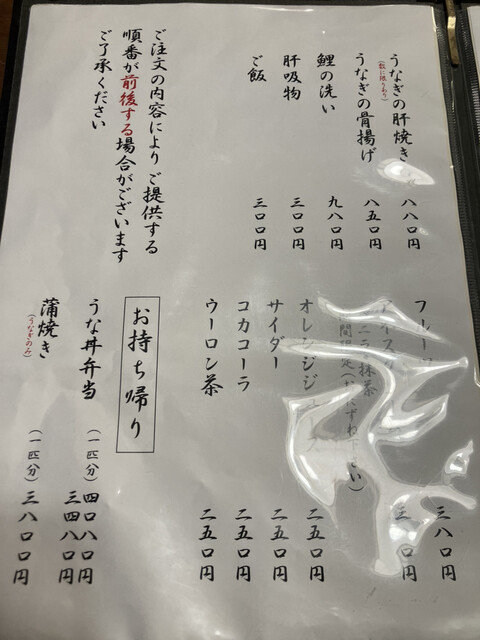 うなぎの肝焼き 八八〇円
(数に限りあり)
うなぎの骨揚げ 八五〇円
鯉の洗い 九八〇円
肝吸物 三〇〇円
ご飯 三〇〇円
ご注文の内容によりご提供する
順番が前後する場合がございます
ご了承ください
フルー 三八〇円
アイス 〇円
抹茶
間限定(おたずね下さい)
オレンジジュース 二五〇円
サイダー 二五〇円
コカコーラ 二五〇円
ウーロン茶 二五〇円
お持ち帰り
うな丼弁当 (一匹分) 四〇八〇円
三四八〇円
蒲焼き (一匹分) 三八〇〇円
(うなぎのみ)